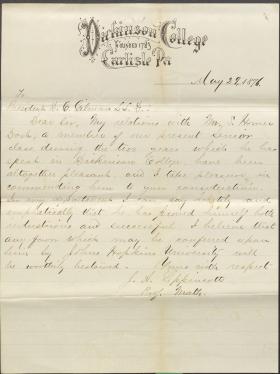 Dickinson College
Founded 1783
Carlisle Pa
May 22 1876.
To
President D. C. Gilman LL.D.:
Dear Sir, My relations with Mr. J. Homer
a member of our present Senior
class during the two years which he has
spent in Dickinson College have been
altogether pleasant, and I take pleasure in
commending him to your consideration.
I can say
emphatically that he has proved himself both
industrious and successful. I believe that
any favor which may be conferred upon
him by Johns Hopkins University will
be worthily bestowed. Yours with respect
J. A. Lippincott
Prof. Math.